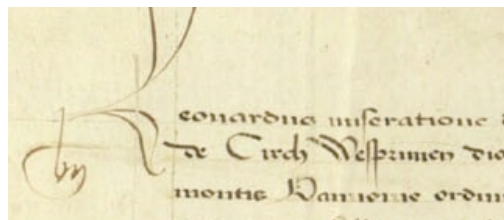 Leonardus miseratione d
de Circh Wesprimien dio
montis Pannonie ordin